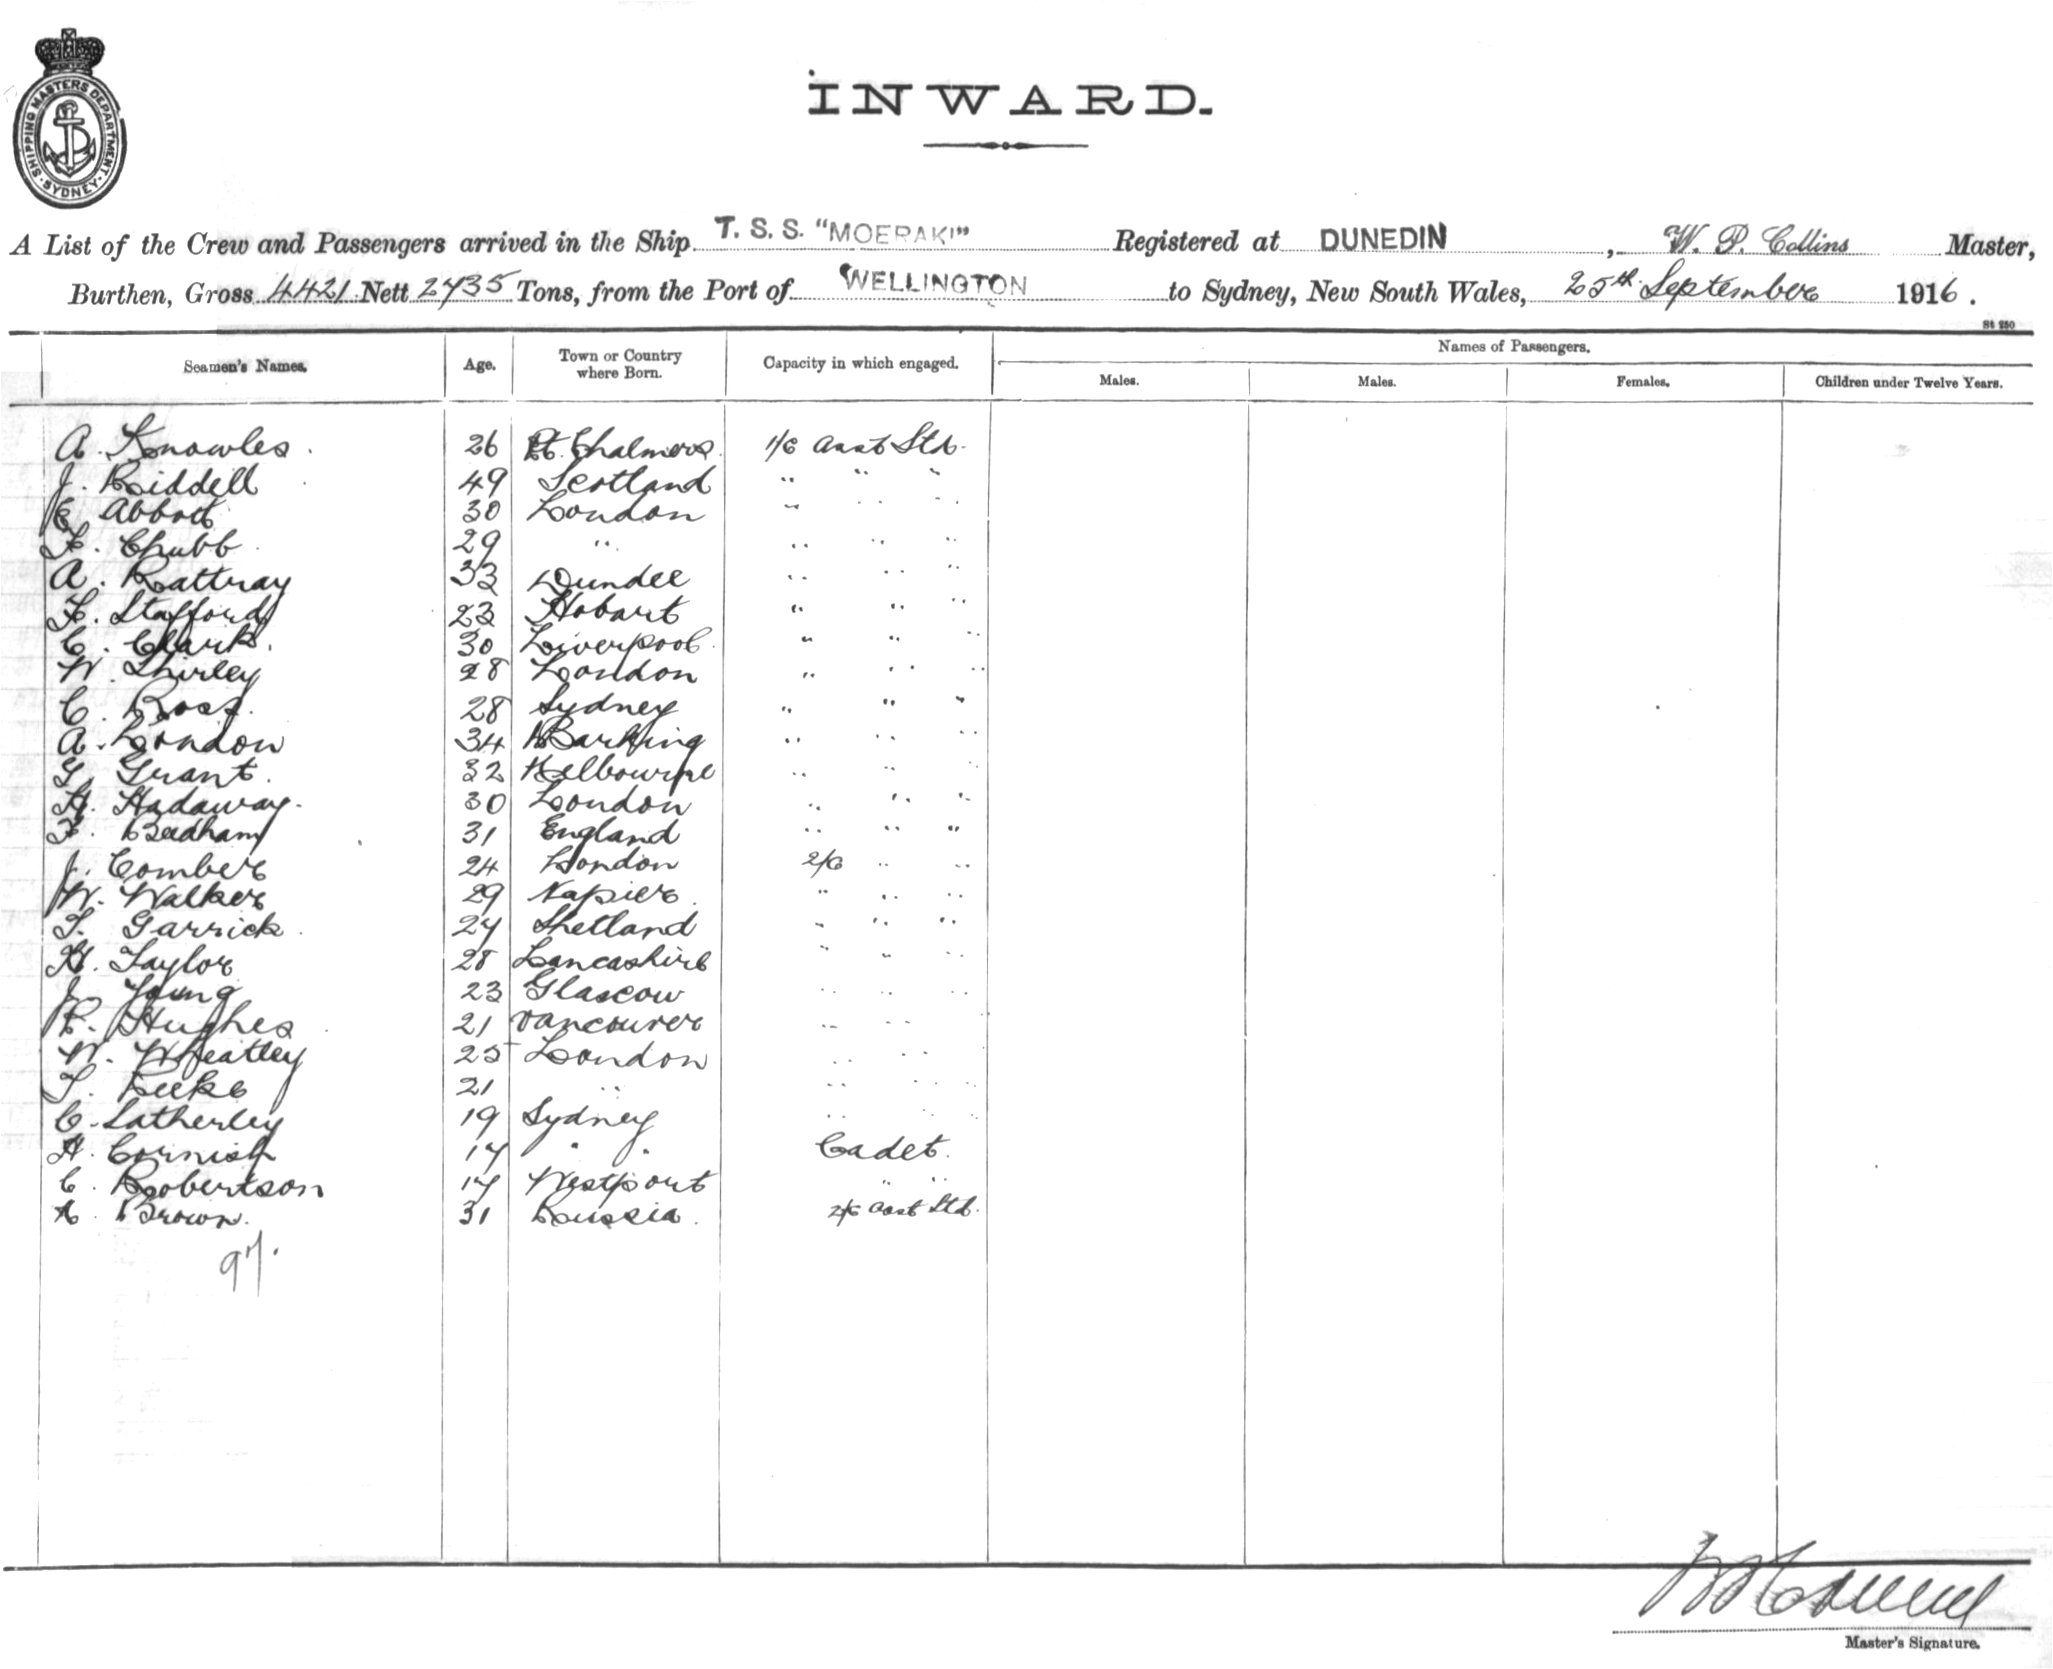 SHIPPING MASTERS DEPARTMENT · SYDNEY ·
INWARD.
A List of the Crew and Passengers arrived in the Ship T. S. S. "MOERAKI" Registered at DUNEDIN, W. P. Collins Master,
Burthen, Gross 4421 Nett 2435 Tons, from the Port of WELLINGTON to Sydney, New South Wales, 25th September 1916.
St 250
Seamen's Names. Age. Town or Country where Born. Capacity in which engaged. Names of Passengers.
Males. Males. Females. Children under Twelve Years.
A. Knowles. 26 Pt. Chalmers. 1/C Asst Std.
J. Riddell 49 Scotland " " "
E. Abbott 30 London " " "
F. Chubb 29 " " " "
A. Rattray 33 Dundee " " "
F. Stafford 23 Hobart " " "
C. Clark. 30 Liverpool " " "
W. Shirley 28 London " " "
C. Ross. 28 Sydney " " "
A. London 34 Barking " " "
Grant. 32 Melbourne " " "
H. Hadaway. 30 London " " "
F. Beedham 31 England " " "
J. Comber 24 London 2/C " "
W. Walker 29 Napier. " " "
T. Garrick 24 Shetland " " "
H. Taylor 28 Lancashire " " "
J. Young 23 Glascow " " "
R. Hughes 21 Vancouver " " "
W. Wheatley 25 London " " "
T. 21 " " " "
C. Latherley 19 Sydney " " "
H. Cornish 17 " " Cadet.
C. Robertson 17 Westport " "
Brown. 31 Russia. 2/C Asst Std.
97.
Master's Signature.